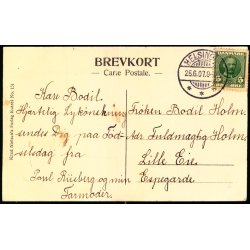 BREVKORT
— Carte Postale. —
HELSINGØR
25.6.07.
Kære Bodil.
Hjærtelig Lykønskning
sendes Dig paa Fød-
selsdag fra
Poul Riisberg og min
Farmoder.
Frøken Bodil Holm.
Adr Fuldmægtig Holm
Lille Eie.
Espegærde